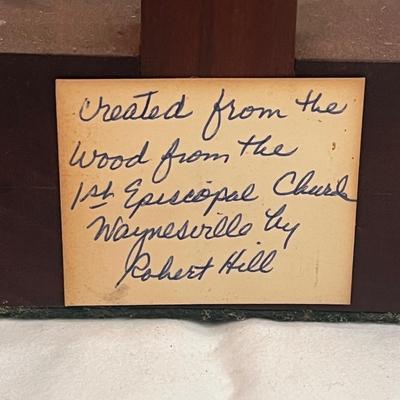 created from the
Wood from the
1st Episcopal Church
Waynesville by
Robert Hill